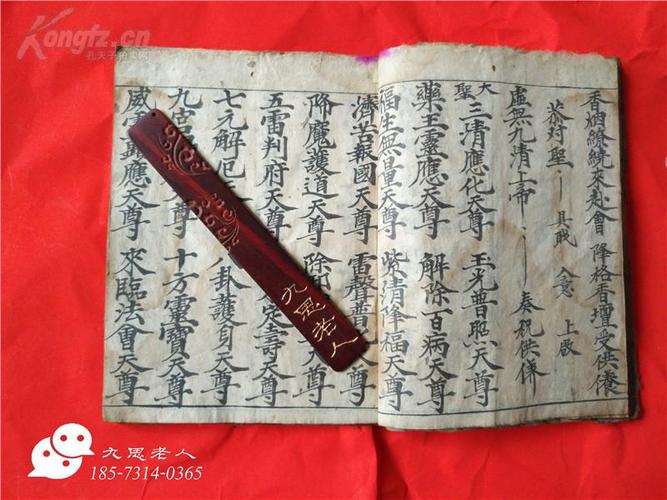 香烟繚繞來赴會 降格香壇受供養
恭对聖 具戝 意 上啟
虛無九清上帝 奏祝供養
大聖 三清應化天尊 玉光普照天尊
藥王靈應天尊 解除百病天尊
福生無量天尊 紫清降福天尊
濟苦報國天尊 雷聲普
降魔護道天尊 除 天尊
五雷判府天尊 定壽天尊
七元解厄 八卦護身天尊
九宮 天尊 十方靈寶天尊
威 應天尊 來臨法會天尊
九思老人
Kongfz.cn
孔夫子拍卖网
九思老人
185-7314-0365